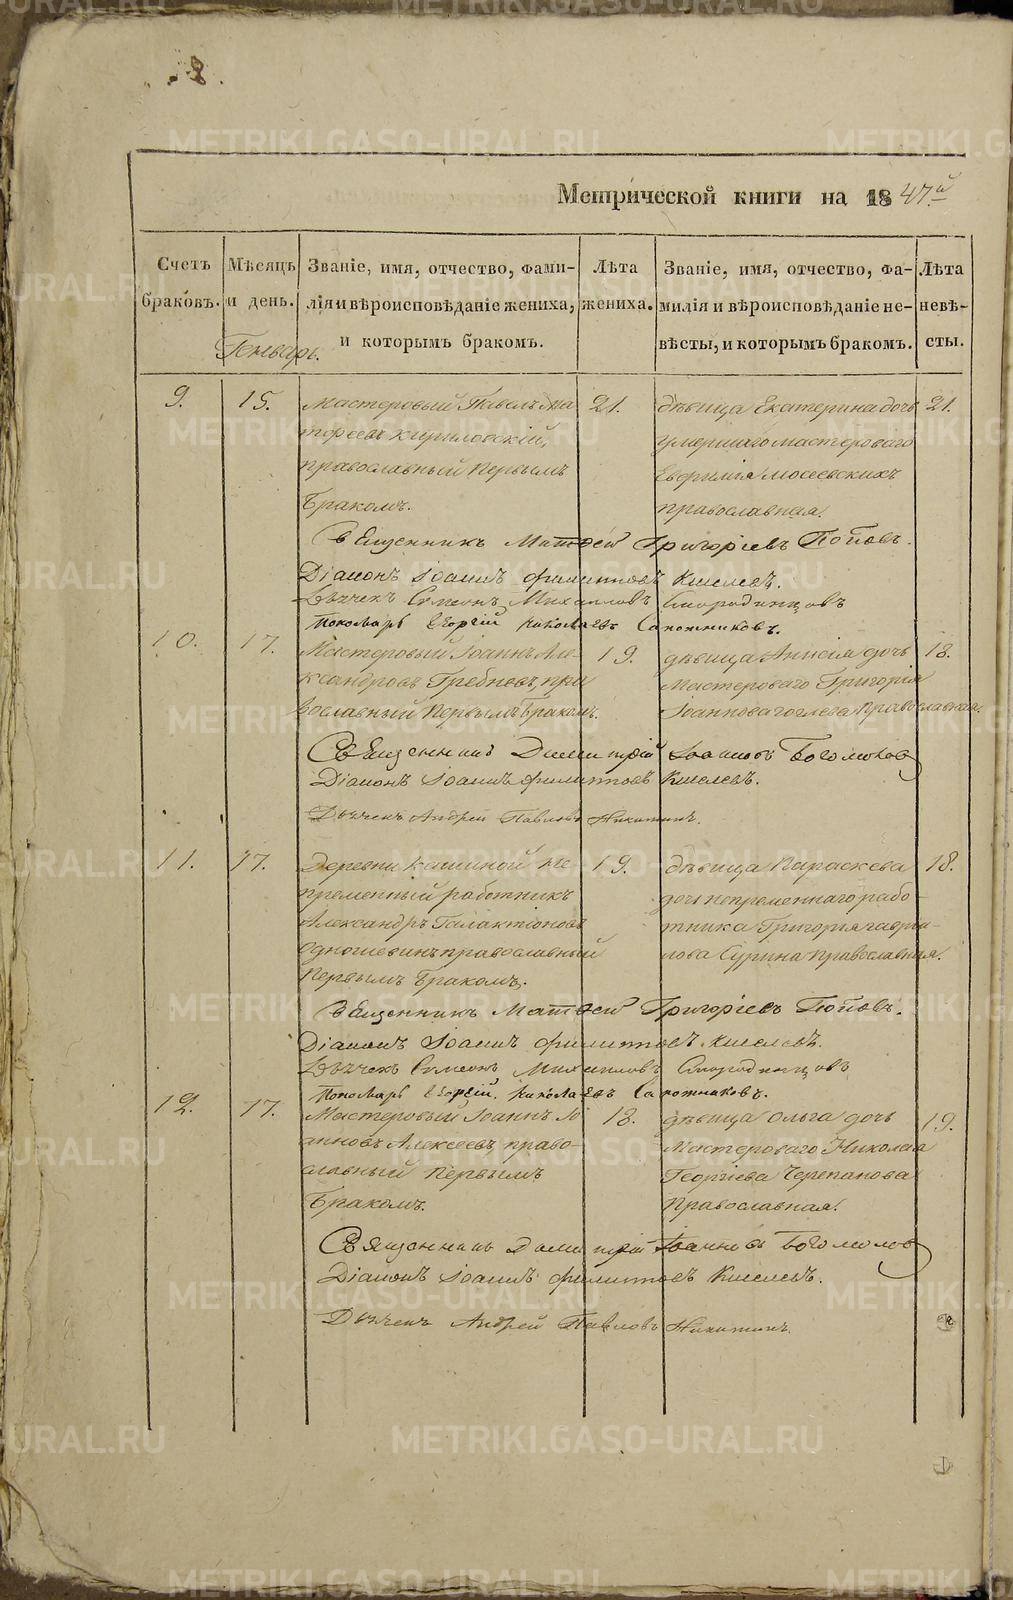 8.
Метрической книги на 1847.й
Счетъ браковъ.
Мѣсяцъ и день.
Званіе, имя, отчество, фами-
лія и вѣроисповѣданіе жениха,
и которымъ бракомъ.
Лѣта жениха.
Званіе, имя, отчество, фа-
милія и вѣроисповѣданіе не-
вѣсты, и которымъ бракомъ.
Лѣта невѣ-
сты.
Генварь.
9. 15.
Мастеровый Павелъ Ма
тфеевъ Кириловскій,
православный Первымъ
Бракомъ.
21.
дѣвица Екатерина дочь
умершаго мастероваго
Евфимія Мосеевскихъ
православная.
21.
Священникъ Матѳей Григоріевъ Поповъ.
Діаконъ Іоаннъ Филипповъ Киселевъ.
Дьячекъ Сѵмеонъ Михаиловъ Смородинцовъ
Пономарь Георгій Николаевъ Сапожниковъ.
10. 17.
Мастеровый Іоаннъ Але-
ксандровъ Гребневъ, пра
вославный Первымъ Бракомъ.
19.
дѣвица Анисія дочь
Мастероваго Григорія
Іоаннова Гоглева Православная.
18.
Священникъ Димитрій Іоанновъ Богомоловъ
Діаконъ Іоаннъ Филипповъ Киселевъ.
Дьячекъ Андрей Павловъ Никитинъ.
11. 17.
Деревни Кашиной не
пременный работникъ
Александръ Галактіоновъ
Одношевинъ православный
Первымъ Бракомъ.
19.
дѣвица Параскева
дочь непременнаго рабо-
тника Григорія Гаври-
лова Сурина Православная.
18.
Священникъ Матѳей Григоріевъ Поповъ.
Діаконъ Іоаннъ Филипповъ Киселевъ.
Дьячекъ Сѵмеонъ Михаиловъ Смородинцовъ
Пономарь Георгій Николаевъ Сапожниковъ.
12. 17.
Мастеровый Іоаннъ Іо
анновъ Алексеевъ, право-
славный Первымъ
Бракомъ.
18.
дѣвица Ольга дочь
Мастероваго Николая
Георгіева Черепанова
Православная.
19.
Священникъ Димитрій Іоанновъ Богомоловъ
Діаконъ Іоаннъ Филипповъ Киселевъ.
Дьячекъ Андрей Павловъ Никитинъ.
METRIKI.GASO-URAL.RU